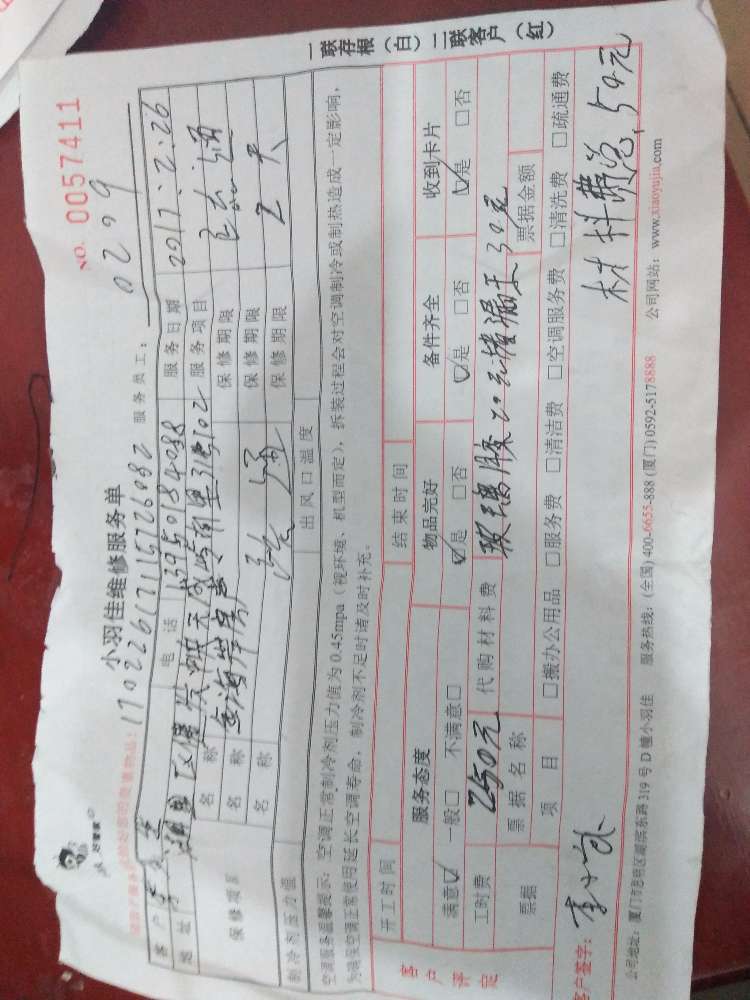 小羽佳维修服务单
NO. 0057411
170226171157726082 服务员工：0209
客户 李 电话 13950184088 服务日期 2017.2.26
地址 湖里区 服务项目
保修项目 名称 保修期限
名称 保修期限
名称 保修期限
制冷剂压力值 出风口温度
空调服务温馨提示：空调正常制冷剂压力值为0.45mpa（视环境、机型而定），拆装过程会对空调制冷或制热造成一定影响，
为确保空调正常使用延长空调寿命，制冷剂不足时请及时补充。
开工时间 结束时间
客户评定 服务态度 物品完好 备件齐全 收到卡片
满意☑ 一般□ 不满意□ ☑是 □否 ☑是 □否 ☑是 □否
工时费 250元 代购材料费 玻璃胶20元 30元
票据 票据名称 票据金额
项目 □搬办公用品 □服务费 □清洁费 □空调服务费 □清洗费 □疏通费
客户签字： 李小 材料费 50元
公司地址：厦门市思明区湖滨东路319号D幢小羽佳 服务热线：(全国) 400-6655-888 (厦门) 0592-5178888 公司网站：www.xiaoyujia.com
一联存根（白）二联客户（红）